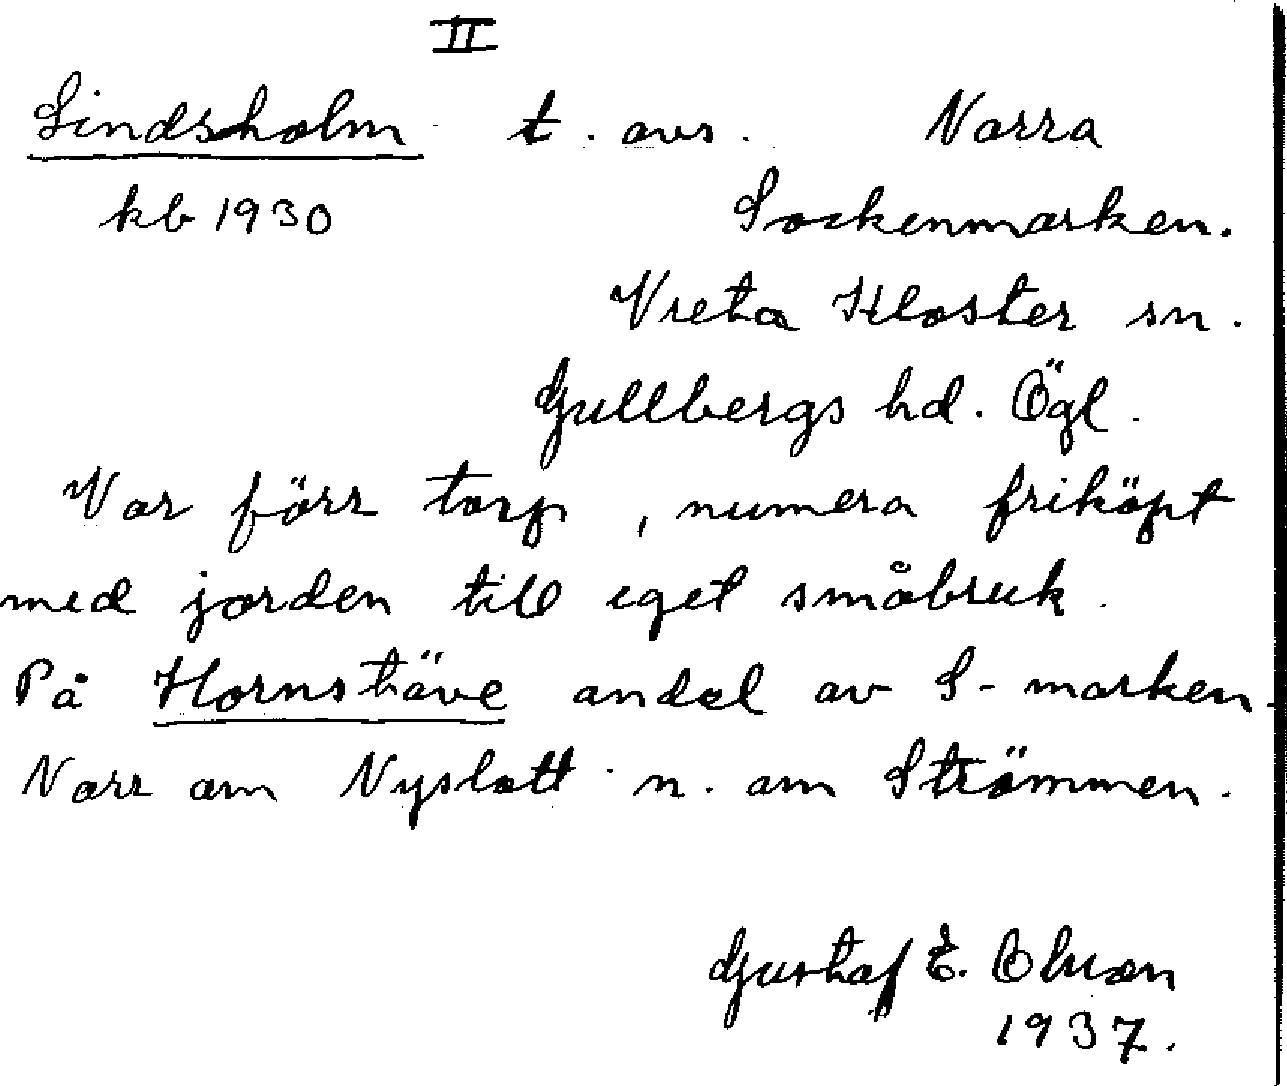 II
Lindsholm t. avs. Norra
kb 1930
Sockenmarken.
Vreta Kloster sn.
Gullbergs hd. Ögl.
Var förr torp, numera friköpt
med jorden till eget småbruk.
På Hornstäve andel av S-marken.
Norr om Nyslott n. om Strömmen.
Gustaf E. Olsson
1937.